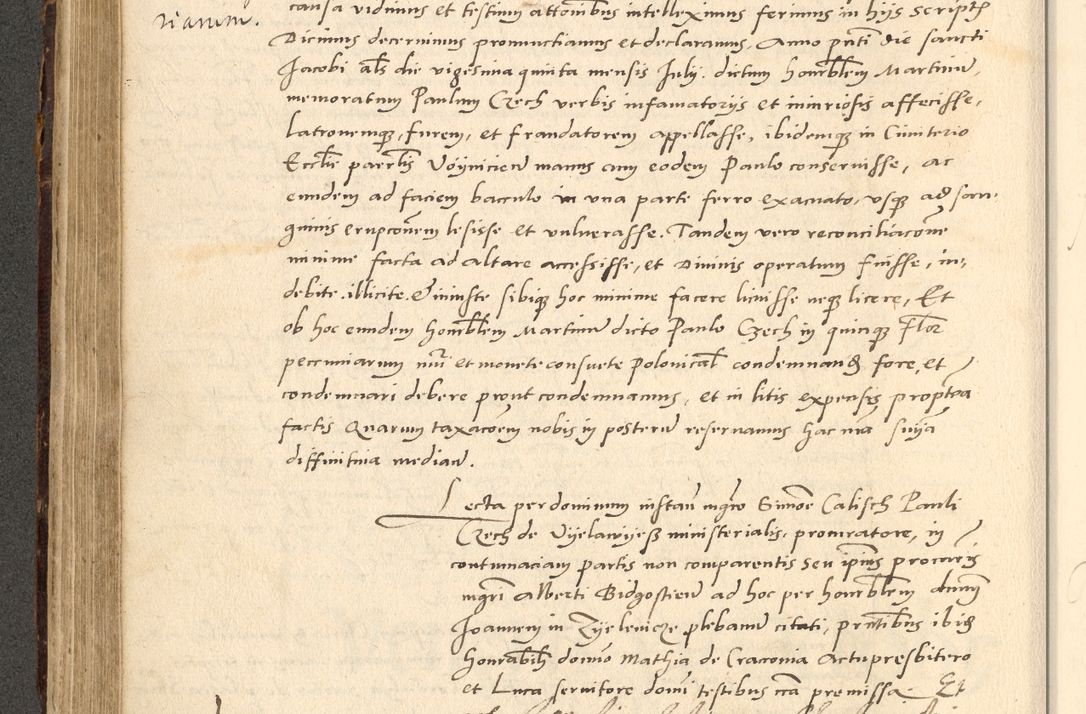 riarum.
causa vidimus et testium attōnibus intelleximus ferimus in hijs scriptis
Dicimus decernimus pronunctiamus et declaramus, Anno pn̄ti die sancti
Jacobi als die vigesima quinta mensis Julij. dictum honrblem Martinū,
memoratum Paulum Czech verbis infamatorijs et iniuriosis affecisse,
latronemqz, furem, et fraudatorem appellasse, ibidemqz in Cimiterio
Eccl̄ie paer̄lis Voynicien̄ manus cum eodem Paulo conseruisse, ac
eundem ad faciem bacculo in vna parte ferro exacuato, vsqz ad san-
guinis erupcōnem lesisse et vulnerasse. Tandem vero reconciliacōne
minime facta ad altare accessisse, et Diuinis operatum fuisse, in-
debite illicite & iniuste sibiqz hoc minime facere licuisse neqz licere, Et
ob hoc eundem honrblem Martinū dicto Paulo Czech in quinqz flor
pecuniarum nūi et monete consuete Polonical̄ condemnand fore, et
condemnari debere prout condemnamus, et in litis expensis propterea
factis Quarum taxacōem nobis in posterū reseruamus hac nr̄a snīa
diffinitiua median̄.
Lecta per dominum instan̄ mgrō Simōe Calisch Pauli
Czech de Vyelawyess ministerialis, procuratore, in
contumaciam partis non comparentis seu ipius procuris
mgri Alberti Bidgostien̄ ad hoc per honrblem dnum
Joannem in Zyelenicze plebanū citati, pn̄tibus ibid
honrabili domino Mathia de Craconia Actupresbitero
et Luca seruitore domi testibus cca premissa. Et